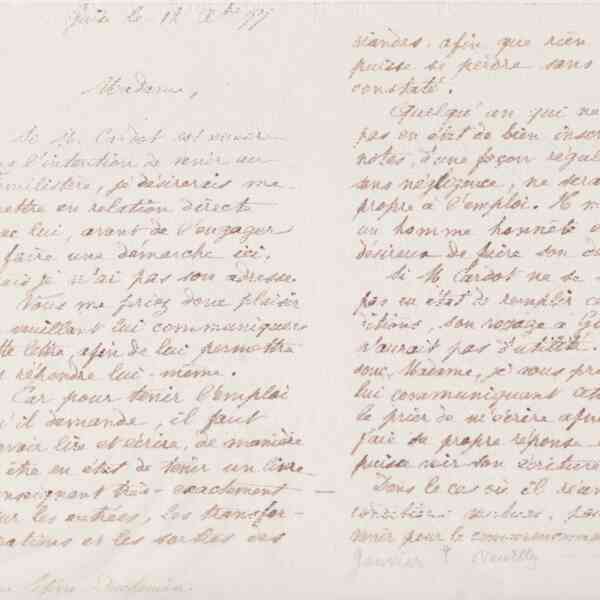 Guise le 12 8bre 77
Madame,
Si M. Cardot est encore
l'intention de venir au
milistère, je désirerais me
mettre en relation directe
ec lui, avant de l'engager
faire une démarche ici.
ais je n'ai pas son adresse.
Vous me feriez donc plaisir
veuillant lui communiquer
tte lettre, afin de lui permettre
répondre lui-même.
Car pour tenir l'emploi
u'il demande, il faut
avoir lire et écrire, de manière
être en état de tenir un livre
enseignant très-exactement
ur les entrées, les transfor-
ations et les sorties des
viandes, afin que rien
puisse se perdre sans
constaté.
Quelqu'un qui ne
pas en état de bien inscri
notes, d'une façon régul
sans négligence, ne sera
propre à l'emploi. Il m
un homme honnête
désireux de faire son
Si M. Cardot ne se
pas en état de remplir ce
ditions, son voyage à Gu
n'aurait pas d'utilité.
donc, Madame, je vous pri
lui communiquant cet
le prier de m'écrire afin
fasse sa propre réponse
puisse voir son écriture
Dans le cas où il réun
conditions voulues, pou
venir pour le commencement
janvier